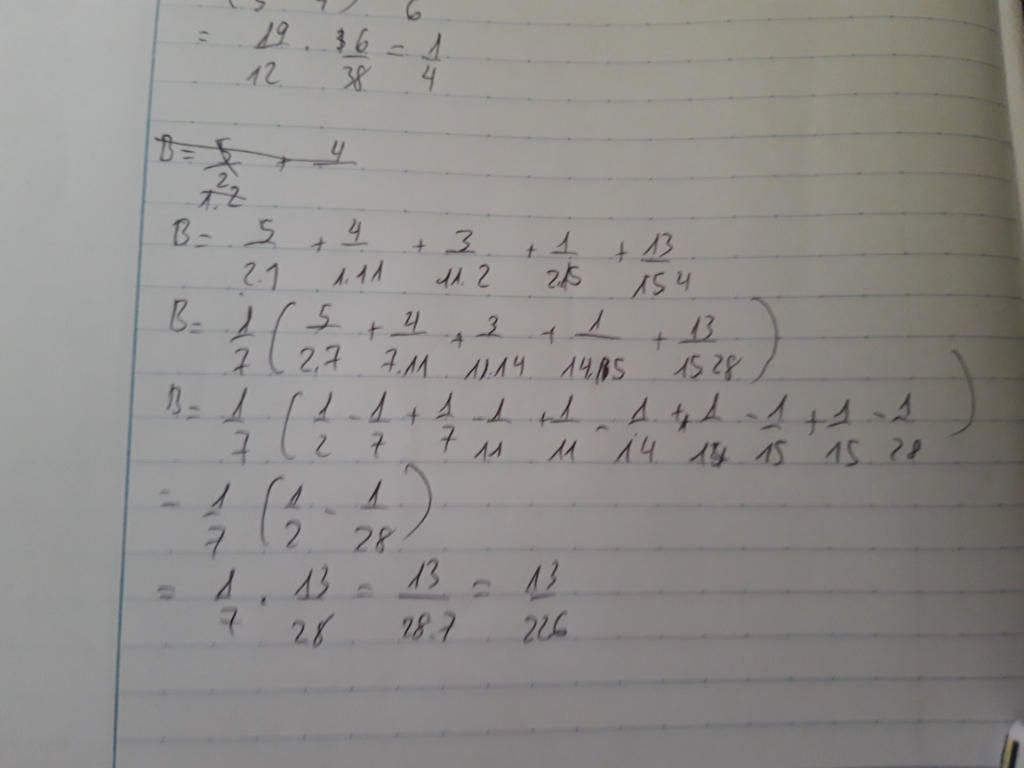 6
= 19/12 . 36/38 = 1/4
B = 5/2 + 4
1.2
B = 5/2.1 + 4/1.11 + 3/11.2 + 1/2.15 + 13/15 4
B = 1/7 ( 5/2.7 + 4/7.11 + 3/11.14 + 1/14.15 + 13/15 28 )
B = 1/7 ( 1/2 - 1/7 + 1/7 - 1/11 + 1/11 - 1/14 + 1/14 - 1/15 + 1/15 - 1/28 )
= 1/7 ( 1/2 - 1/28 )
= 1/7 . 13/28 = 13/28.7 = 13/226